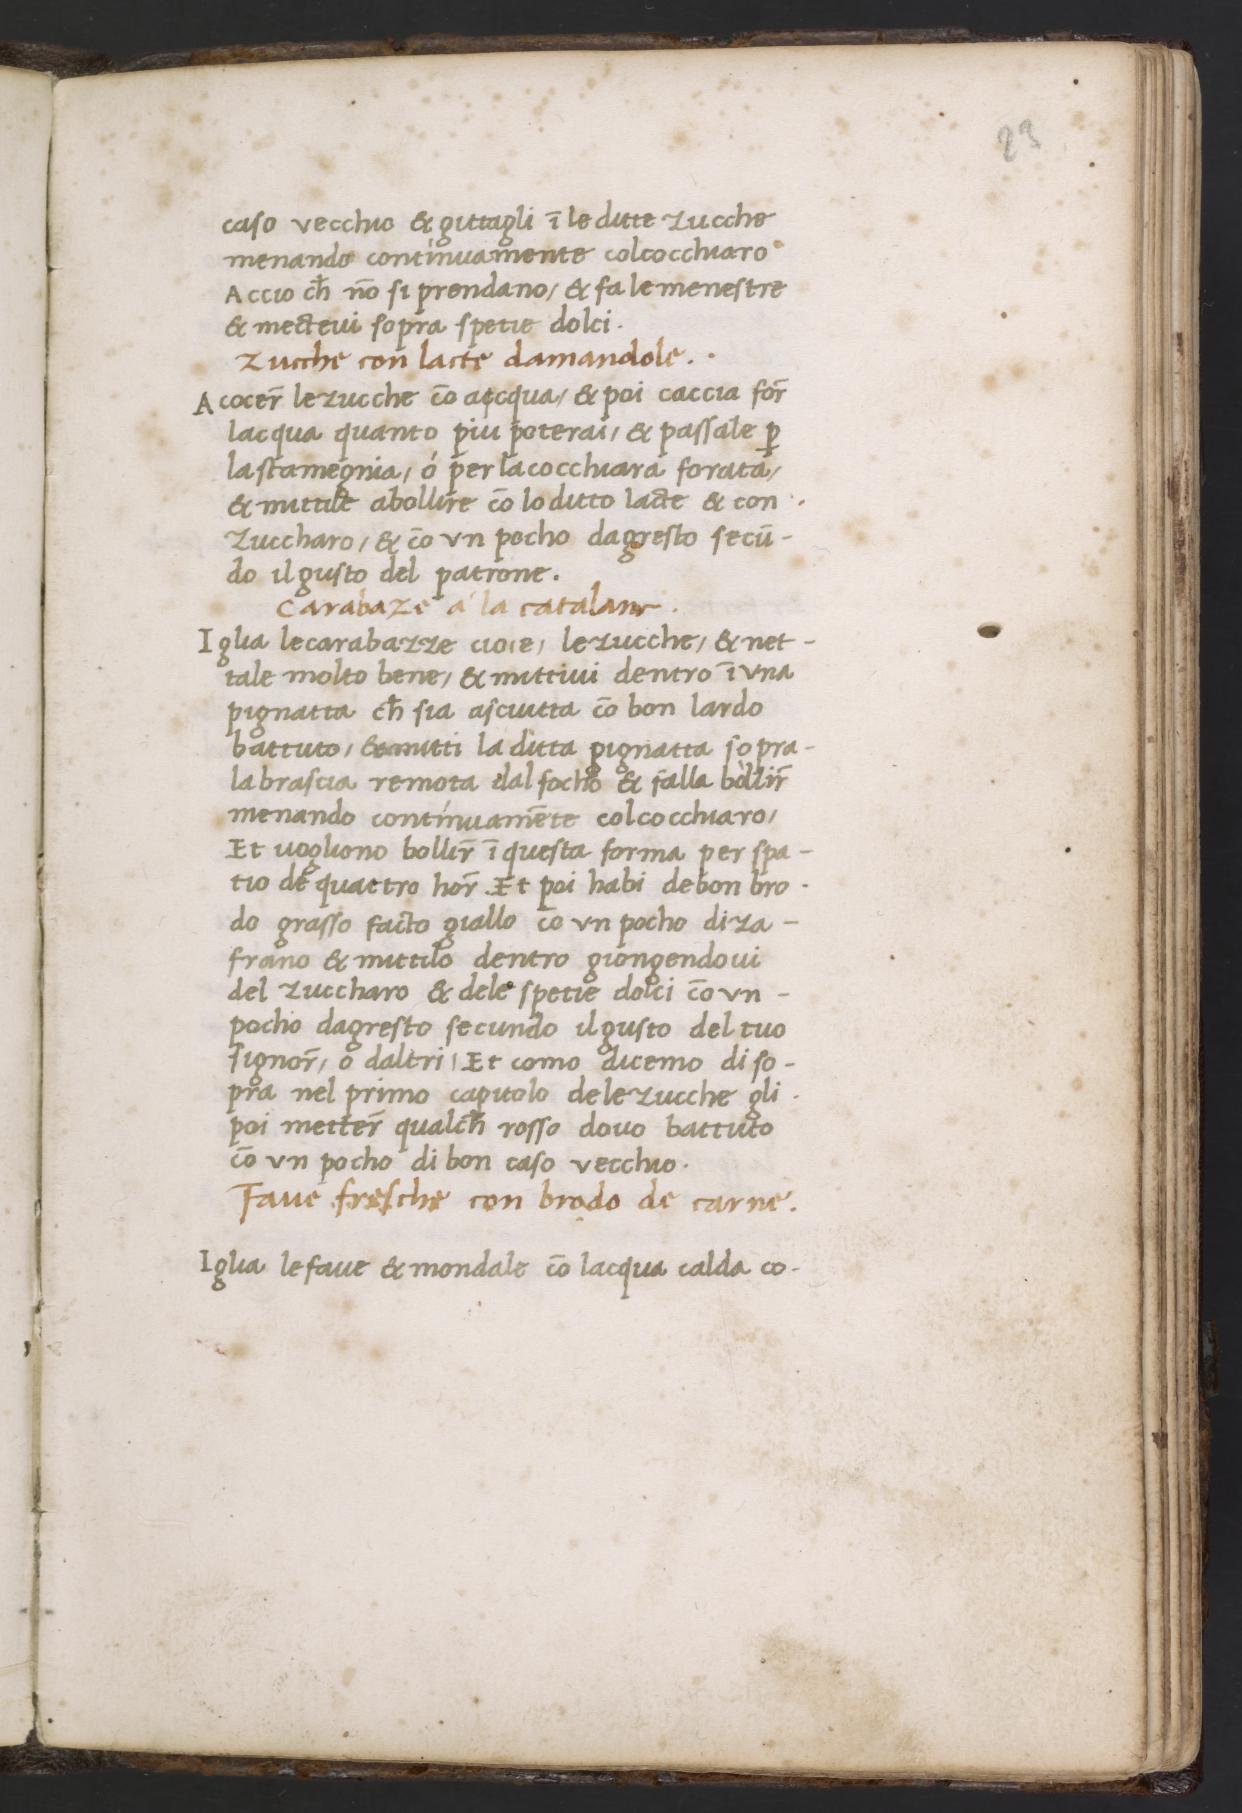 23
caso vecchio & guttagli ī le ditte zucche
menando continuamente colcocchiaro
Accio ch̄ nō si prendano / & fa le menestre
& mectevi sopra spetie dolci .
Zucche con lacte damandole . .
A cocer̄ le zucche cō acqua / & poi caccia for̄
lacqua quanto piu poterai / & passale ꝑ
la stamegnia / ó per la cocchiara forata /
& mittile abollire cō lo ditto lacte & con .
Zuccharo / & cō vn pocho dagresto secū -
do il gusto del patrone .
Carabaze a la catalana .
Iglia le carabazze cioie / le zucche / & net -
tale molto bene / & mittivi dentro ī vna
pignatta ch̄ sia asciutta cō bon lardo
battuto / & mitti la ditta pignatta sopra -
la brascia remota dal focho & falla bollir̄
menando continuamēte colcocchiaro /
Et uogliono bollir̄ ī questa forma per spa -
tio de quattro hor̄ . Et poi habi de bon bro -
do grasso facto giallo cō vn pocho di za -
frano & mittilo dentro giongendoui
del zuccharo & dele spetie dolci cō vn -
pocho dagresto secundo il gusto del tuo
signor̄ / o daltri / Et como dicemo di so -
pra nel primo capitolo de le zucche gli .
poi metter̄ qualch̄ rosso dovo battuto
cō vn pocho di bon caso vecchio .
Faue fresche con brodo de carne .
Iglia le faue & mondale cō lacqua calda co -